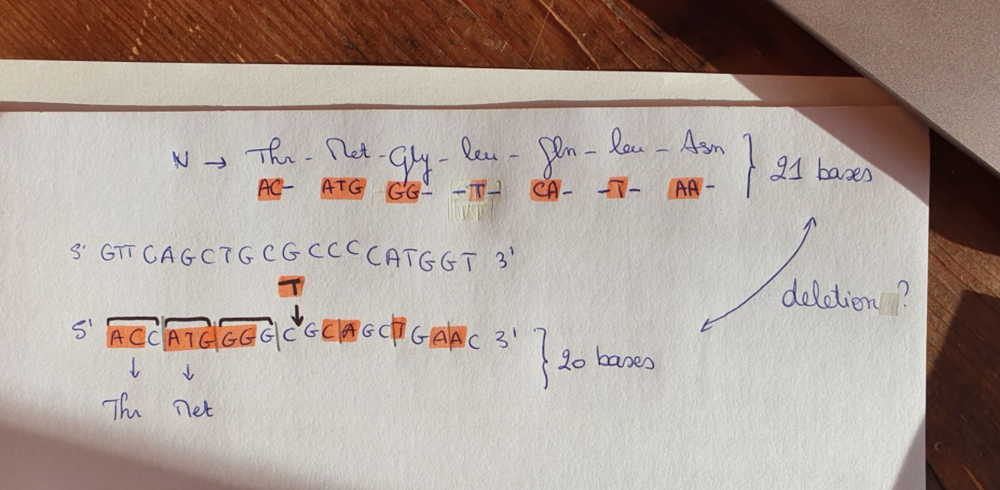 N → Thr - Met - Gly - leu - Gln - leu - Asn } 21 bases
AC- ATG GG- -T- CA- -T- AA-
5' GTTCAGCTGCGCCCCATGGT 3'
T
deletion ?
5' ACCATGGGGCGCAGCTGAAC 3' } 20 bases
↓ ↓
Thr Met